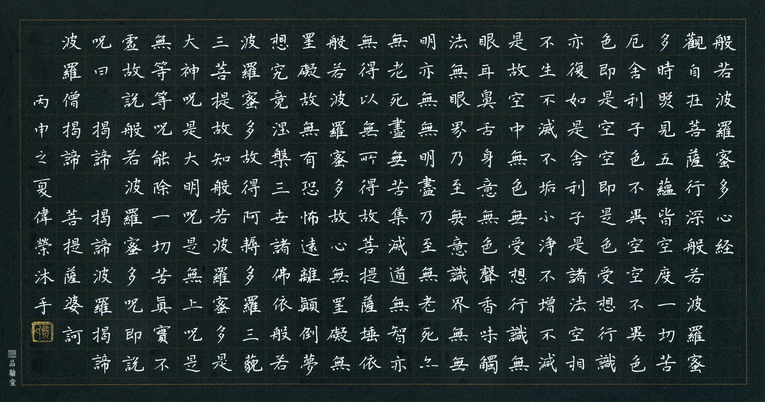 般若波羅蜜多心經
觀自在菩薩行深般若波羅蜜
多時照見五蘊皆空度一切苦
厄舍利子色不異空空不異色
色即是空空即是色受想行識
亦復如是舍利子是諸法空相
不生不滅不垢不淨不增不減
是故空中無色無受想行識無
眼耳鼻舌身意無色聲香味觸
法無眼界乃至無意識界無無
明亦無無明盡乃至無老死亦
無老死盡無苦集滅道無智亦
無得以無所得故菩提薩埵依
般若波羅蜜多故心無罣礙無
罣礙故無有恐怖遠離顛倒夢
想究竟涅槃三世諸佛依般若
波羅蜜多故得阿耨多羅三藐
三菩提故知般若波羅蜜多是
大神呪是大明呪是無上呪是
無等等呪能除一切苦真實不
虛故說般若波羅蜜多呪即說
呪曰 揭諦 揭諦波羅揭諦
波羅僧揭諦 菩提薩婆訶
丙申之夏偉榮沐手
品翰堂